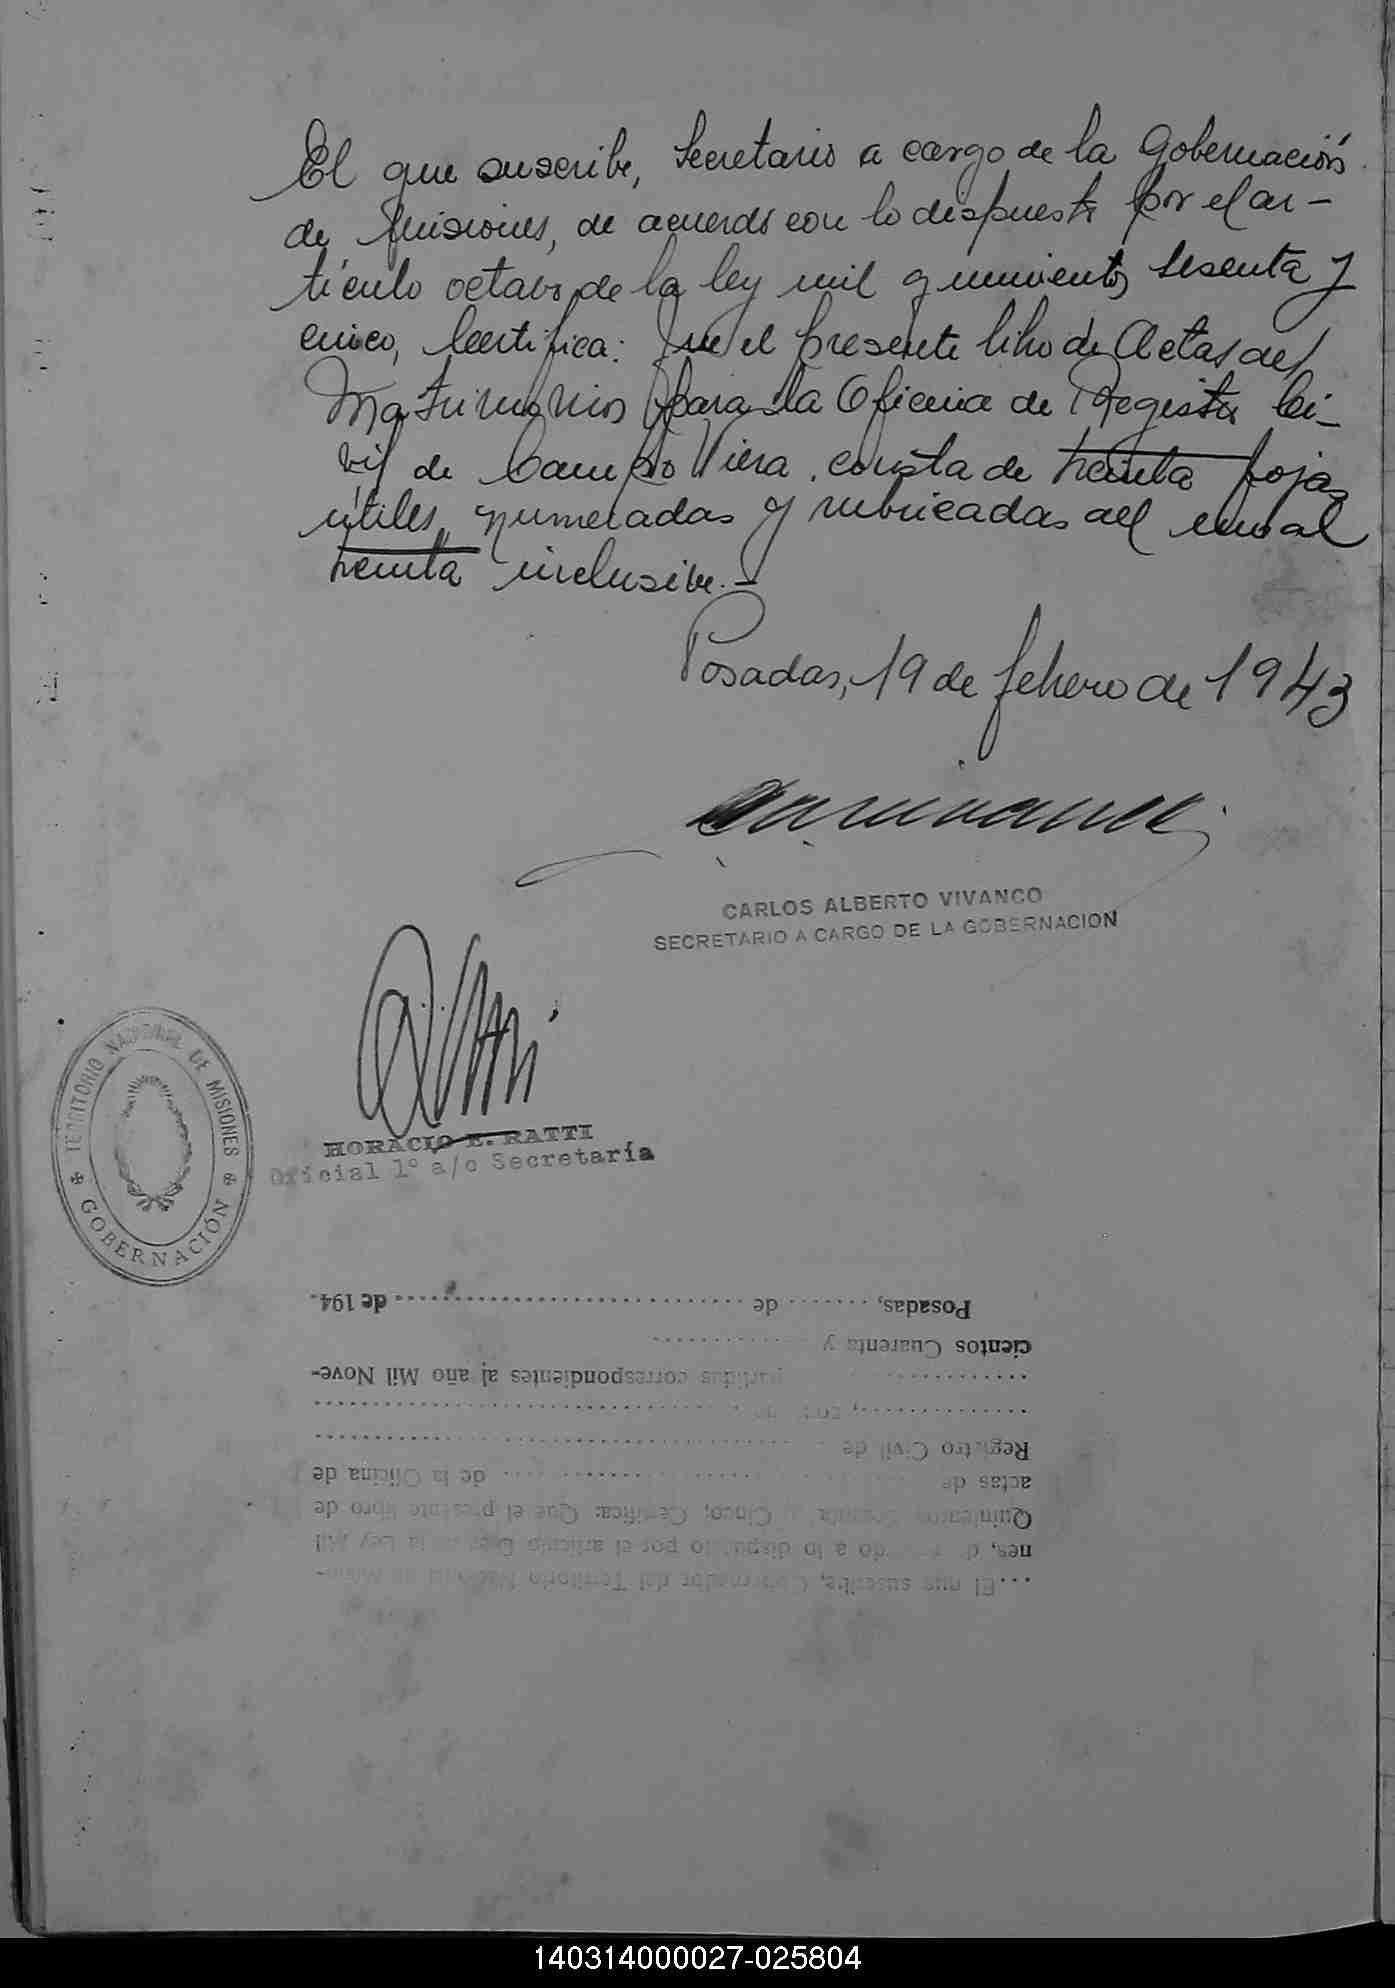 El que suscribe, Secretario a cargo de la Gobernación
de Misiones, de acuerdo con lo dispuesto por el ar-
tículo octavo de la ley mil quinientos sesenta y
cinco, Certifica: Que el presente libro de Actas de
Matrimonios para la Oficina de Registro Ci-
vil de Campo Viera, consta de treinta fojas
útiles, numeradas y rubricadas del uno al
treinta inclusive.-
Posadas, 19 de febrero de 1943
CARLOS ALBERTO VIVANCO
SECRETARIO A CARGO DE LA GOBERNACION
HORACIO E. RATTI
Oficial 1º a/c Secretaría
TERRITORIO NACIONAL DE MISIONES
GOBERNACIÓN
...El que suscribe, Gobernador del Territorio Nacional de Misio-
nes, de a lo dispuesto por el artículo de la Ley Mil
Quinientos Sesenta y Cinco; Certifica: Que el presente libro de
actas de de la Oficina de
Registro Civil de
partidas correspondientes al año Mil Nove-
cientos Cuarenta y
Posadas, de de 194.
140314000027-025804